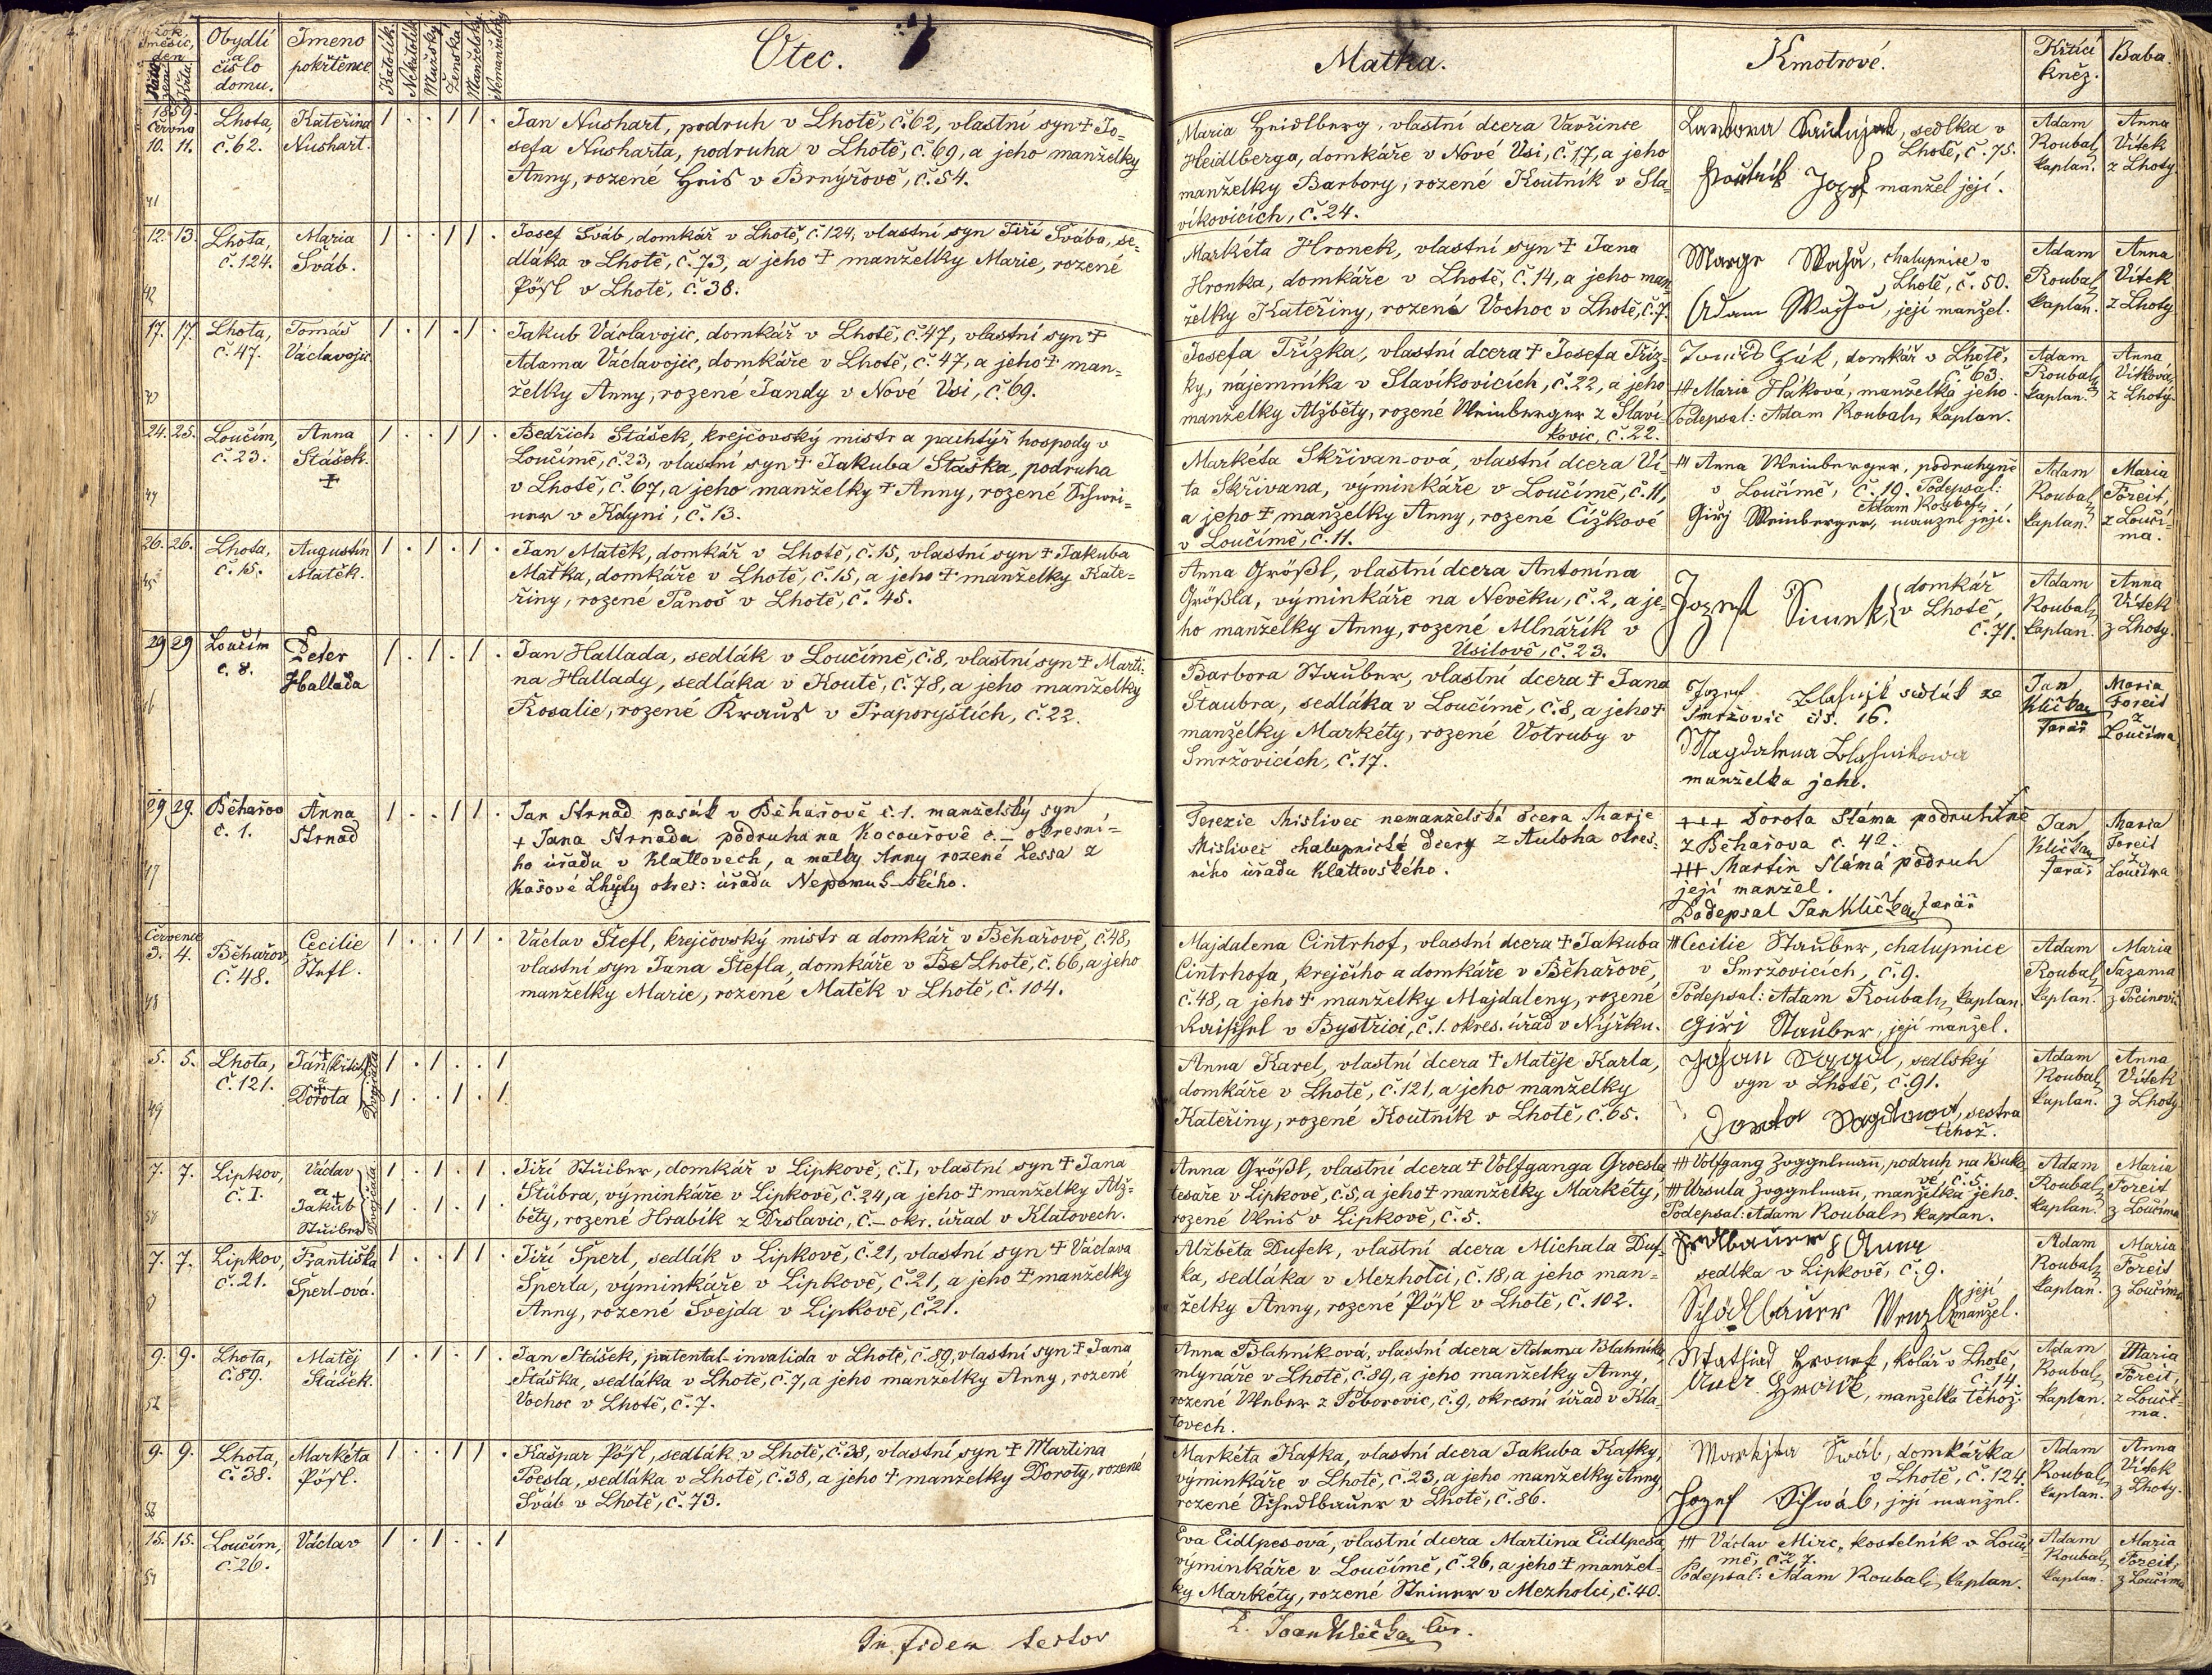 Rok, měsíc, den
Naro-zení
Křtu.
Obydlí
a
číslo
domu.
Jmeno
pokřtěnce.
Katolík.
Nekatolík
Mužský
Ženská
Manželský
Nemanželský
Otec.
Matka.
Kmotrové.
Křtící
kněz.
Baba.
1859.
června
10. 11.
41
Lhota,
č. 62.
Kateřina
Nushart.
1 . . 1 1 .
Jan Nushart, podruh v Lhotě, č. 62, vlastní syn † Jo=
sefa Nusharta, podruha v Lhotě, č. 69, a jeho manželky
Anny, rozené Heis v Brnýřově, č. 54.
Maria Heidlberg, vlastní dcera Vavřince
Heidlberga, domkáře v Nové Vsi, č. 17, a jeho
manželky Barbory, rozené Koutník v Sla-
víkovicích, č. 24.
Barbora, sedlka v
Lhotě, č. 75.
Jozef manžel její.
Adam
Roubal,
kaplan.
Anna
Vítek
z Lhoty
12. 13.
42
Lhota,
č. 124.
Maria
Šváb.
1 . . 1 1 .
Josef Šváb, domkář v Lhotě, č. 124, vlastní syn Jiří Švába, se-
dláka v Lhotě, č. 73, a jeho † manželky Marie, rozené
Pösl v Lhotě, č. 38.
Markéta Hronek, vlastní syn † Jana
Hronka, domkáře v Lhotě, č. 14, a jeho man-
želky Kateřiny, rozená Vochoc v Lhotě, č. 7.
chalupnice v
Lhotě, č. 50.
Adam, její manžel.
Adam
Roubal,
kaplan.
Anna
Vítek
z Lhoty
17. 17.
43
Lhota,
č. 47.
Tomáš
Václavojic
1 . 1 . 1 .
Jakub Václavojic, domkář v Lhotě, č. 47, vlastní syn †
Adama Václavojic, domkáře v Lhotě, č. 47, a jeho † man=
želky Anny, rozené Jandy v Nové Vsi, č. 69.
Josefa Třízka, vlastní dcera † Josefa Tříz-
ky, nájemníka v Slavíkovicích, č. 22, a jeho
manželky Alžběty, rozené Weinberger z Slaví-
kovic, č. 22.
domkář v Lhotě,
č. 63.
+++ Maria Háková, manželka jeho.
Podepsal: Adam Roubal, kaplan.
Adam
Roubal,
kaplan.
Anna
Vítková,
z Lhoty.
24. 25.
44
Loučím,
č. 23.
Anna
Stášek.
†
1 . . 1 1 .
Bedřich Stášek, krejčovský mistr a pachtýř hospody v
Loučímě, č. 23, vlastní syn † Jakuba Stáška, podruha
v Lhotě, č. 67, a jeho manželky † Anny, rozené Schrei=
ner v Kdyni, č. 13.
Markéta Skřivan-ová, vlastní dcera Ví-
ta Skřivana, výminkáře v Loučímě, č. 11,
a jeho † manželky Anny, rozené Čížkové
v Loučímě, č. 11.
+++ Anna Weinberger, podruhyně
v Loučímě, č. 19. Podepsal:
Adam Roubal,
Giřj Weinberger, manžel její.
Adam
Roubal,
kaplan.
Maria
Foreit,
z Loučí-
ma.
26. 26.
45
Lhota,
č. 15.
Augustin
Matěk.
1 . 1 . 1 .
Jan Matěk, domkář v Lhotě, č. 15, vlastní syn † Jakuba
Maťka, domkáře v Lhotě, č. 15, a jeho † manželky Kate=
řiny, rozené Panoš v Lhotě, č. 45.
Anna Größl, vlastní dcera Antonína
Größla, výminkáře na Névěku, č. 2, a je-
ho manželky Anny, rozené Mlnářík v
Úsilově, č. 23.
Jozef
domkář
v Lhotě,
č. 71.
Adam
Roubal,
kaplan.
Anna
Vítek
z Lhoty.
29 29
46
Loučím
č. 8.
Peter
Hallada
1 . 1 . 1 .
Jan Hallada, sedlák v Loučímě, č. 8, vlastní syn † Marti-
na Hallady, sedláka v Koutě, č. 78, a jeho manželky
Rosalie, rozené Kraus v Praporyštích, č. 22.
Barbora Stauber, vlastní dcera † Jana
Štaubra, sedláka v Loučímě, č. 8, a jeho †
manželky Markéty, rozené Votruby v
Smržovicích, č. 17.
Jozef sedlák ze
Smržovic čís. 16.
Magdalena
manželka jeho.
Jan
Klička
farář
Maria
Foreit
z
Loučíma
29 29.
47
Běhařov
č. 1.
Anna
Strnad
1 . . 1 1 .
Jan Strnad pasák v Běhařově č. 1. manželský syn
+ Jana Strnada podruha na Kocourově č. — okresní=
ho úřadu v Klattovech, a matky Anny rozené Lessa z
Kašové Lhůty okres: úřadu Nepomuckého.
Terezie Mislivec nemanželská dcera Marje
Mislivec chalupnické dcery z Autoha okres-
ního úřadu Klattovského.
+++ Dorota Sláma podruhině
z Běhařova č. 42.
+++ Martin Sláma podruh
její manžel.
Podepsal Jan Klička farář
Jan
Klička
farář
Maria
Foreit
z
Loučíma
Července
3. 4.
48
Běhařov,
č. 48.
Cecilie
Štefl.
1 . . 1 1 .
Václav Štefl, krejčovský mistr a domkář v Běhařově, č. 48,
vlastní syn Jana Stefla, domkáře v Be Lhotě, č. 66, a jeho
manželky Marie, rozené Matěk v Lhotě, č. 104.
Majdalena Cintrhof, vlastní dcera † Jakuba
Cintrhofa, krejčího a domkáře v Běhařově,
č. 48, a jeho † manželky Majdaleny, rozené
v Bystřici, č. 1. okres. úřad v Nýrsku.
+++ Cecilie Stauber, chalupnice
v Smržovicích, č. 9.
Podepsal: Adam Roubal, kaplan.
Giří Stauber, její manžel.
Adam
Roubal,
kaplan.
Maria
Sazama
z Pocinovic
5. 5.
49
Lhota,
č. 121.
Jan (křtitel)
a
Dorota
Dvojčata
1 . 1 . . 1
1 . . 1 . 1
Anna Karel, vlastní dcera † Matěje Karla,
domkáře v Lhotě, č. 121, a jeho manželky
Kateřiny, rozené Koutník v Lhotě, č. 65.
sedlský
syn v Lhotě, č. 91.
sestra
téhož.
Adam
Roubal,
kaplan.
Anna
Vítek
z Lhoty
7. 7.
50
Lipkov,
č. I.
Václav
a
Jakub
Stüiber
Dvojčata
1 . 1 . 1 .
1 . 1 . 1 .
Jiří Stüiber, domkář v Lipkově, č. I, vlastní syn † Jana
Stübra, výminkáře v Lipkově, č. 24, a jeho † manželky Alž=
běty, rozené Hrabík z Drslavic, č. — okr. úřad v Klatovech.
Anna Größl, vlastní dcera † Volfganga Groesla
tesaře v Lipkově, č. 5, a jeho † manželky Markéty,
rozené v Lipkově, č. 5.
+++ Volfgang Zoggelmann, podruh na Buko-
vě, č. 5.
+++ Ursula Zoggelmann, manželka jeho.
Podepsal: Adam Roubal, kaplan.
Adam
Roubal,
kaplan.
Maria
Foreit
z Loučíma
7. 7.
51
Lipkov,
č. 21.
Františka
Šperl-ová.
1 . . 1 1 .
Jiří Šperl, sedlák v Lipkově, č. 21, vlastní syn † Václava
Šperla, výminkáře v Lipkově, č. 21, a jeho † manželky
Anny, rozené Švejda v Lipkově, č. 21.
Alžběta Dufek, vlastní dcera Michala Duf-
ka, sedláka v Mezholci, č. 18, a jeho man=
želky Anny, rozené Pösl v Lhotě, č. 102.
Anna
sedlka v Lipkově, č. 9.
Schödlbauer Wenzl
její
manžel.
Adam
Roubal,
kaplan.
Maria
Foreit
z Loučíma
9. 9.
52
Lhota,
č. 89.
Matěj
Stášek.
1 . 1 . 1 .
Jan Stášek, patental-invalida v Lhotě, č. 89, vlastní syn † Jana
Stáška, sedláka v Lhotě, č. 7, a jeho manželky Anny, rozené
Vochoc v Lhotě, č. 7.
Anna Blahník-ová, vlastní dcera Adama Blahníka,
mlynáře v Lhotě, č. 89, a jeho manželky Anny,
rozené Weber z Poborovic, č. 9, okresní úřad v Kla-
tovech.
Mathias Hronek, kolář v Lhotě,
č. 14.
manželka téhož.
Adam
Roubal,
kaplan.
Maria
Foreit,
z Loučí-
ma.
9. 9.
53
Lhota,
č. 38.
Markéta
Pösl.
1 . . 1 1 .
Kašpar Pösl, sedlák v Lhotě, č. 38, vlastní syn † Martina
Poesla, sedláka v Lhotě, č. 38, a jeho † manželky Doroty, rozené
Šváb v Lhotě, č. 73.
Markéta Kafka, vlastní dcera Jakuba Kafky,
výminkáře v Lhotě, č. 23, a jeho manželky Anny,
rozené Schedlbauer v Lhotě, č. 86.
Markjta Šváb, domkářka
v Lhotě, č. 124
Jozef Schwáb, její manžel.
Adam
Roubal,
kaplan.
Anna
Vítek
z Lhoty.
15. 15.
54
Loučím,
č. 26.
Václav
1 . 1 . . 1
Eva Eidlpes-ová, vlastní dcera Martina Eidlpesa,
výminkáře v Loučímě, č. 26, a jeho † manžel-
ky Markéty, rozené Steiner v Mezholci, č. 40.
+++ Václav Mirc, kostelník v Loučí-
mě, č. 27.
Podepsal: Adam Roubal, kaplan.
Adam
Roubal,
kaplan.
Maria
Foreit,
z Loučíma
In fidem testor
P. Joan Klička Cur.